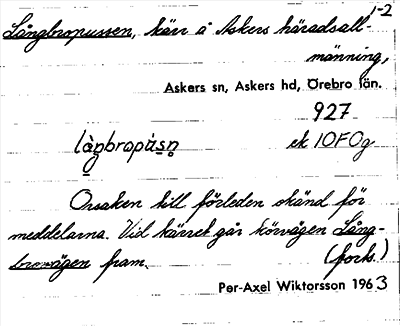 1-2
Långbropussen, kärr å Askers häradsall-
männing,
Askers sn, Askers hd, Örebro län.
927
làŋbropùsn̥ ek 10F0g
Orsaken till förleden okänd för
meddelarna. Vid kärret går körvägen Lång-
brovägen fram. (forts.)
Per-Axel Wiktorsson 1963